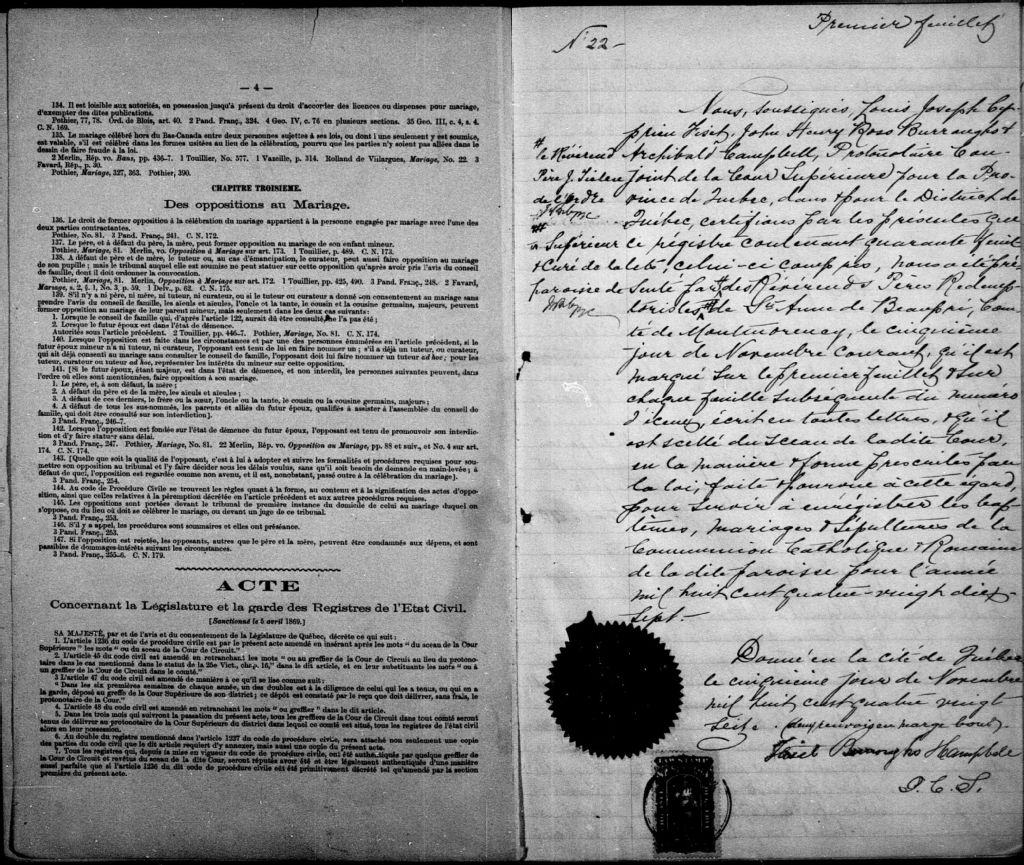 — 4 —
134. Il est loisible aux autorités, en possession jusqu'à présent du droit d'accorder des licences ou dispenses pour mariage,
d'exempter des dites publications.
Pothier, 77, 78. Ord. de Blois, art. 40. 2 Pand. Franç., 324. 4 Geo. IV, c. 76 en plusieurs sections. 35 Geo. III, c. 4, s. 4.
C. N. 169.
135. Le mariage célébré hors du Bas-Canada entre deux personnes sujettes à ses lois, ou dont l une seulement y est soumise,
est valable, s'il est célébré dans les formes usitées au lieu de la célébration, pourvu que les parties n'y soient pas allées dans le
dessin de faire fraude à la loi.
2 Merlin, Rép. vo. Bans, pp. 436-7. 1 Touillier, No. 577. 1 Vazeille, p. 314. Rolland de Vilargues, Mariage, No. 22. 3
Favard, Rép., p. 30.
Pothier, Mariage, 327, 363. Pothier, 390.
CHAPITRE TROISIEME.
Des oppositions au Mariage.
136. Le droit de former opposition à la célébration du mariage appartient à la personne engagée par mariage avec l'une des
deux parties contractantes.
Pothier, No. 81. 3 Pand. Franç., 241. C. N. 172.
137. Le père, et à défaut du père, la mère, peut former opposition au mariage de son enfant mineur.
Pothier, Mariage, 81. Merlin, vo. Opposition à Mariage sur art. 173. 1 Touillier, p. 489. C. N. 173.
138. A défaut de père et de mère, le tuteur ou, au cas d'émancipation, le curateur, peut aussi faire opposition au mariage
de son pupille ; mais le tribunal auquel elle est soumise ne peut statuer sur cette opposition qu'après avoir pris l'avis du conseil
de famille, dont il doit ordonner la convocation.
Pothier, Mariage, 81. Merlin, Opposition à Mariage sur art. 172. 1 Touillier, pp. 425, 490. 3 Pand. Franç., 248. 2 Favard,
Mariage, s. 2, § 1, No. 3, p. 59. 1 Delv., p. 62. C. N. 175.
139. S'il n'y a ni père, ni mère, ni tuteur, ni curateur, ou si le tuteur ou curateur a donné son consentement au mariage sans
prendre l'avis du conseil de famille, les aïeuls et aïeules, l'oncle et la tante, le cousin et la cousine germains, majeurs, peuvent
former opposition au mariage de leur parent mineur, mais seulement dans les deux cas suivants :
1. Lorsque le conseil de famille qui, d'après l'article 122, aurait dû être consulté, ne l'a pas été ;
2. Lorsque le futur époux est dans l'état de démence.
Autorités sous l'article précédent. 2 Touillier, pp. 446-7. Pothier, Mariage, No. 81. C. N. 174.
140. Lorsque l'opposition est faite dans les circonstances et par une des personnes énumérées en l'article précédent, si le
futur époux mineur n'a ni tuteur, ni curateur, l'opposant est tenu de lui en faire nommer un ; s'il a déjà un tuteur, ou curateur,
qui ait déjà consenti au mariage sans consulter le conseil de famille, l'opposant doit lui faire nommer un tuteur ad hoc ; pour les
tuteur, curateur ou tuteur ad hoc, représenter les intérêts du mineur sur cette opposition.
141. [Si le futur époux, étant majeur, est dans l'état de démence, et non interdit, les personnes suivantes peuvent, dans
l'ordre où elles sont mentionnées, faire opposition à son mariage.
1. Le père, et, à son défaut, la mère ;
2. A défaut du père et de la mère, les aïeuls et aïeules ;
3. A défaut de ces derniers, le frère ou la sœur, l'oncle ou la tante, le cousin ou la cousine germains, majeurs ;
4. A défaut de tous les sus-nommés, les parents et alliés du futur époux, qualifiés à assister à l'assemblée du conseil de
famille, qui doit être consulté sur son interdiction].
3 Pand. Franç., 246-7.
142. Lorsque l'opposition est fondée sur l'état de démence du futur époux, l'opposant est tenu de promouvoir son interdic-
tion et d'y faire statuer sans délai.
3 Pand. Franç., 247. Pothier, Mariage, No. 81. 22 Merlin, Rép. vo. Opposition au Mariage, pp. 88 et suiv., et No. 4 sur art.
174. C. N. 174.
143. [Quelle que soit la qualité de l'opposant, c'est à lui à adopter et suivre les formalités et procédures requises pour sou-
mettre son opposition au tribunal et l'y faire décider sous les délais voulus, sans qu'il soit besoin de demande en main-levée ; à
défaut de quoi, l'opposition est regardée comme non avenue, et il est, nonobstant, passé outre à la célébration du mariage].
3 Pand. Franç., 254.
144. Au code de Procédure Civile se trouvent les règles quant à la forme, au contenu et à la signification des actes d'oppo-
sition, ainsi que celles relatives à la péremption décrétée en l'article précédent et aux autres procédures requises.
145. Les oppositions sont portées devant le tribunal de première instance du domicile de celui au mariage duquel on
s'oppose, ou du lieu où doit se célébrer le mariage, ou devant un juge de ce tribunal.
3 Pand. Franç., 253.
146. S'il y a appel, les procédures sont sommaires et elles ont préséance.
3 Pand. Franç., 253.
147. Si l'opposition est rejetée, les opposants, autres que le père et la mère, peuvent être condamnés aux dépens, et sont
passibles de dommages-intérêts suivant les circonstances.
3 Pand. Franç., 255-6. C. N. 179.
ACTE
Concernant la Législature et la garde des Registres de l'Etat Civil.
[Sanctionné le 5 avril 1869.]
SA MAJESTÉ, par et de l'avis et du consentement de la Législature de Québec, décrète ce qui suit :
1. L'article 1236 du code de procédure civile est par le présent acte amendé en insérant après les mots " du sceau de la Cour
Supérieure " les mots " ou du sceau de la Cour de Circuit."
2. L'article 45 du code civil est amendé en retranchant les mots " ou au greffier de la Cour de Circuit au lieu du protono-
taire dans le cas mentionné dans le statut de la 25e Vict., chap. 16," dans le dit article, et en leur substituant les mots " ou à
un greffier de la Cour de Circuit dans le comté."
3 L'article 47 du code civil est amendé de manière à ce qu'il se lise comme suit :
" Dans les six premières semaines de chaque année, un des doubles est à la diligence de celui qui les a tenus, ou qui en a
la garde, déposé au greffe de la Cour Supérieure de son district ; ce dépôt est constaté par le reçu que doit délivrer, sans frais, le
protonotaire de la Cour."
4. L'article 48 du code civil est amendé en retranchant les mots " ou greffier " dans le dit article.
5. Dans les trois mois qui suivront la passation du présent acte, tous les greffiers de la Cour de Circuit dans tout comté seront
tenus de délivrer au protonotaire de la Cour Supérieure du district dans lequel ce comté est situé, tous les registres de l'état civil
alors en leur possession.
6. Au double du registre mentionné dans l'article 1237 du code de procédure civile, sera attaché non seulement une copie
des parties du code civil que le dit article requiert d'y annexer, mais aussi une copie du présent acte.
7. Tous les registres qui, depuis la mise en vigueur du code de procédure civile, ont été authentiqués par quelque greffier de
la Cour de Circuit et revêtus du sceau de la dite Cour, seront réputés avoir été et être légalement authentiqués d'une manière
aussi parfaite que si l'article 1236 du dit code de procédure civile eût été primitivement décrété tel qu'amendé par la section
première du présent acte.
Premier feuillet
No 22 -
Nous, soussignés, Louis Joseph Cy-
prien Fiset, John Henry Ross Burroughs &
Archibald Campbell, Protonotaire Con-
joint de la Cour Supérieure pour la Pro-
vince de Quebec, dans & pour le District de
Québec, certifions par les présentes que
ce régistre contenant quarante feuil-
lets, celui-ci compris, nous a été pré-
senté par # des Révérends Pères Redemp-
toristes ## de Ste Anne de Beaupré, Com-
té de Montmorency, le cinquième
jour de Novembre courant, qu'il est
marqué sur le premier feuillet & sur
chaque feuille subséquente du numéro
d'icenx, écrit en toutes lettres, & qu'il
est scellé du Sceau de la dite Cour,
en la manière & forme prescrites par
la loi, faite & pourvue à cet égard,
pour servir à enrégistrer les bap-
têmes, mariages & sépultures de la
Communion Catholique & Romaine
de la dite paroisse pour l'année
mil huit cent quatre-vingt dix-
sept.
# le Révérend
Père J.
de l'Ordre
##
Supérieur
& Curé de la dite
paroisse de
Donné en la cité de Québec
le cinquième jour de Novembre
mil huit cent quatre vingt
seize. deux renvois en marge bons
Fiset Burroughs & Campbell
P. C. S.